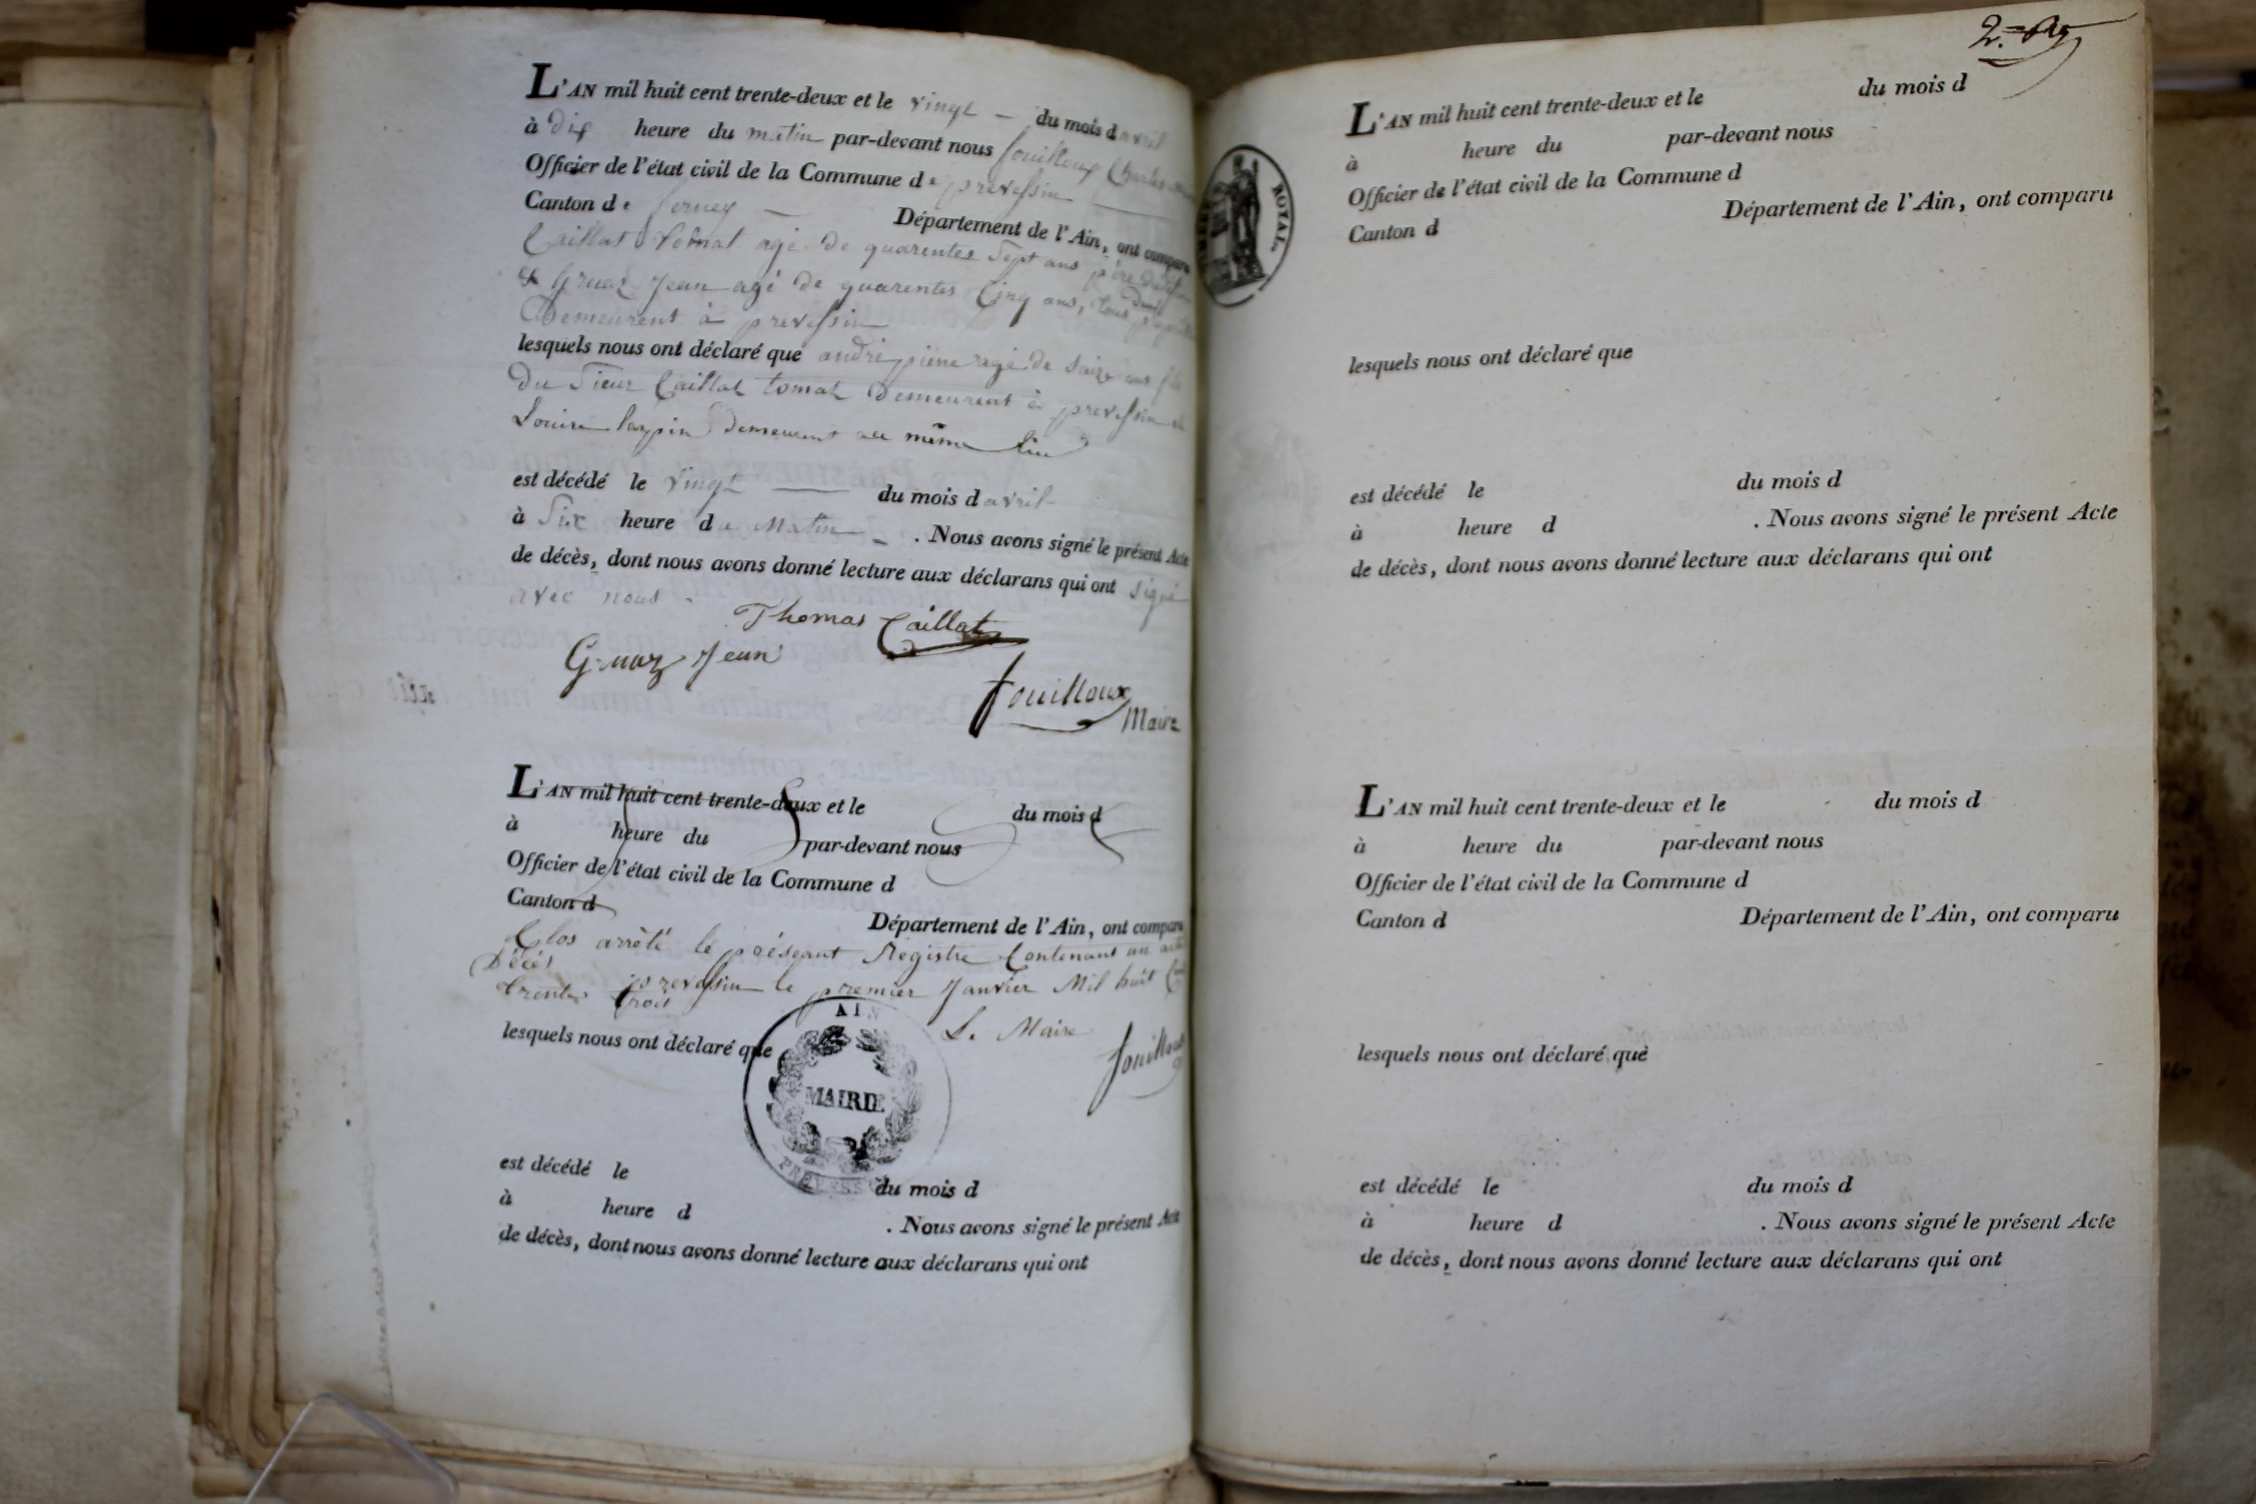 L'AN mil huit cent trente-deux et le vingt du mois d avril
à dix heure du matin par-devant nous fouilloux Charles
Officier de l'état civil de la Commune de prevessin
Canton de ferney Département de l'Ain, ont comparu
Caillat tomat agé de quarentes Sept ans père
et Gruaz Jean agé de quarentes Cinq ans, tous deux
Demeurent à prevessin
lesquels nous ont déclaré que andré pierre agé de saize ans fils
Du Sieur Caillat tomat Demeurent à prevessin et
Louise lappin demeurent au même lieu
est décédé le vingt du mois d avril
à Six heure du Matin . Nous avons signé le présent Acte
de décès, dont nous avons donné lecture aux déclarans qui ont signé
avec nous
Thomas Caillat
Gruaz Jean
fouilloux
Maire
L'AN mil huit cent trente-deux et le du mois d
à heure du par-devant nous
Officier de l'état civil de la Commune d
Canton d
Département de l'Ain, ont comparu
Clos arrêté le préseant Registre Contenant un acte
Décès
prevessin le premier Janvier Mil huit Cent
trente trois
L. Maire
lesquels nous ont déclaré que
fouilloux
AIN
MAIRIE
PREVESSIN
est décédé le du mois d
à heure d . Nous avons signé le présent Acte
de décès, dont nous avons donné lecture aux déclarans qui ont
2.
ROYAL.
L'AN mil huit cent trente-deux et le du mois d
à heure du par-devant nous
Officier de l'état civil de la Commune d
Canton d Département de l'Ain, ont comparu
lesquels nous ont déclaré que
est décédé le du mois d
à heure d . Nous avons signé le présent Acte
de décès, dont nous avons donné lecture aux déclarans qui ont
L'AN mil huit cent trente-deux et le du mois d
à heure du par-devant nous
Officier de l'état civil de la Commune d
Canton d Département de l'Ain, ont comparu
lesquels nous ont déclaré que
est décédé le du mois d
à heure d . Nous avons signé le présent Acte
de décès, dont nous avons donné lecture aux déclarans qui ont